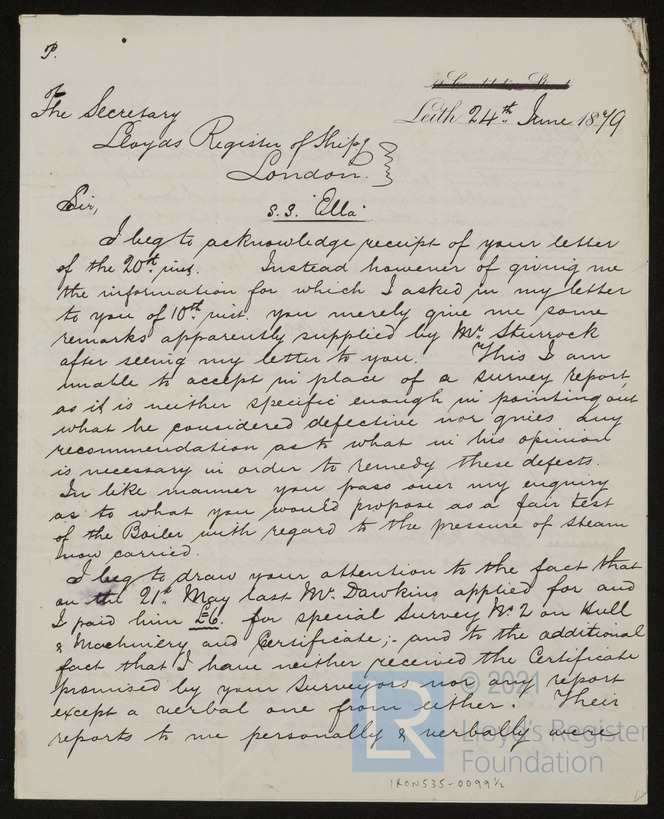 P.
Leith 24th June 1879
The Secretary
Lloyds Register of Shipg
London.
Sir,
S.S. "Ella"
I beg to acknowledge receipt of your letter
of the 20th inst. Instead however of giving me
the information for which I asked in my letter
to you of 10th inst. you merely give me some
remarks apparently supplied by Mr. Sturrock
after seeing my letter to you. This I am
unable to accept in place of a survey report,
as it is neither specific enough in pointing out
what he considered defective nor gives any
recommendation as to what in his opinion
is necessary in order to remedy these defects.
In like manner you pass over my enquiry
as to what you would propose as a fair test
of the Boiler with regard to the pressure of steam
now carried.
I beg to draw your attention to the fact that
on the 21st May last Mr. Dawkins applied for and
I paid him £6. for special Survey No. 2 on Hull
& Machinery and Certificate;- and to the additional
fact that I have neither received the Certificate
promised by your Surveyors nor any report
except a verbal one from either. Their
reports to me personally & verbally were
© 2021
LR
Lloyd's Register
Foundation
IRON535-0099½